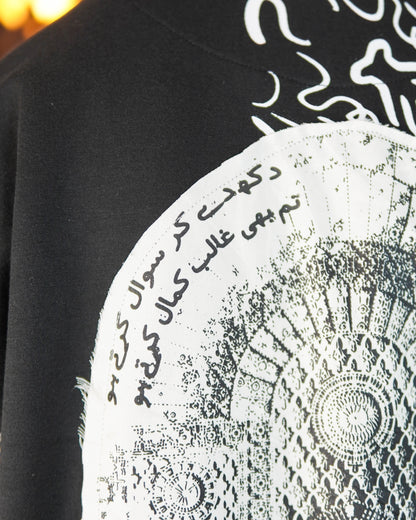 دکھ دے کر سوال کرتے ہو
تم بھی غالب کمال کرتے ہو